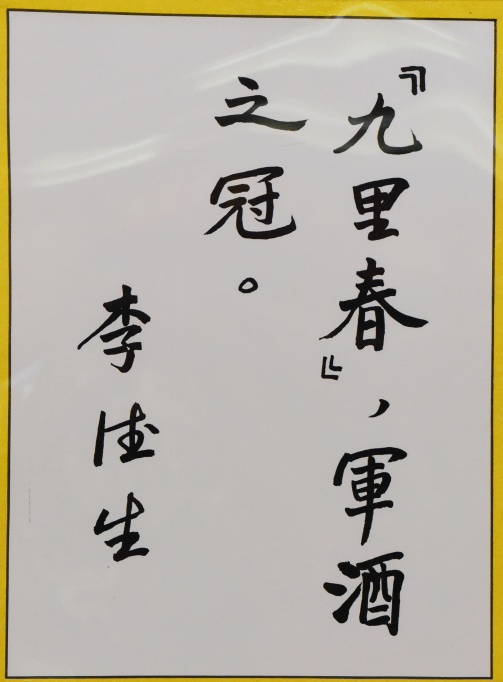 『九里春』，軍酒
之冠。
李德生